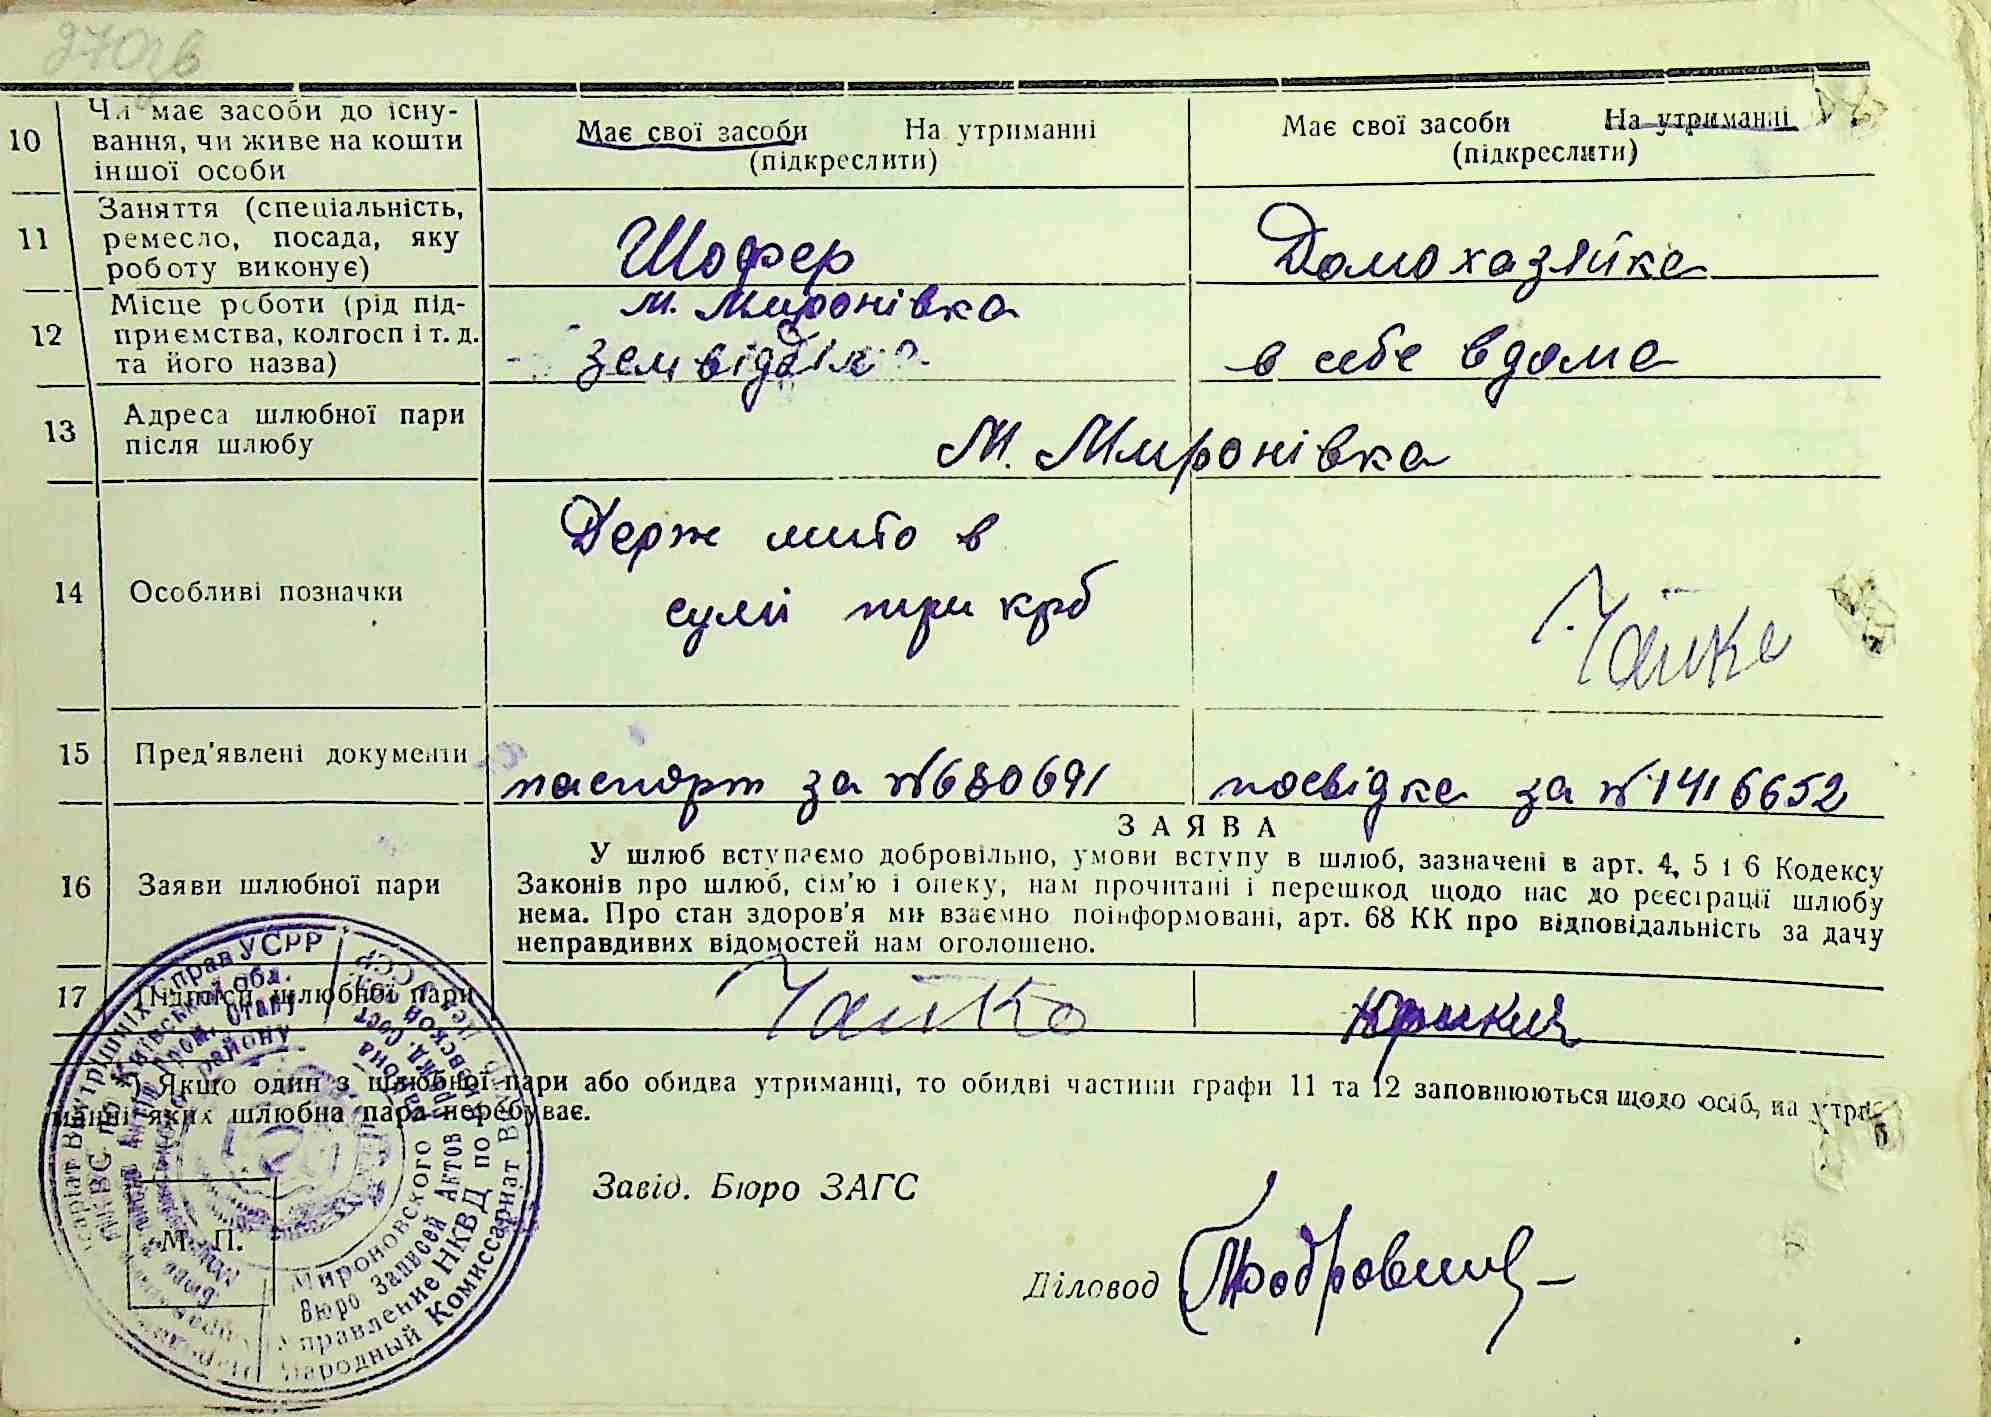 270зв
10
Чи має засоби до існу-
вання, чи живе на кошти
іншої особи
Має свої засоби На утриманні
(підкреслити)
Має свої засоби На утриманні
(підкреслити)
11
Заняття (спеціальність,
ремесло, посада, яку
роботу виконує)
Шофер
Домохазяйка
12
Місце роботи (рід під-
приємства, колгосп і т. д.
та його назва)
м. Миронівка
земвідділ
в себе вдома
13
Адреса шлюбної пари
після шлюбу
М. Миронівка
14
Особливі позначки
Держ мито в
сумі три крб
Чайка
15
Пред'явлені документи
паспорт за № 680691
посвідка за № 1416652
16
Заяви шлюбної пари
ЗАЯВА
У шлюб вступаємо добровільно, умови вступу в шлюб, зазначені в арт. 4, 5 і 6 Кодексу
Законів про шлюб, сім'ю і опеку, нам прочитані і перешкод щодо нас до реєстрації шлюбу
нема. Про стан здоров'я ми взаємно поінформовані, арт. 68 КК про відповідальність за дачу
неправдивих відомостей нам оголошено.
17
Підписи шлюбної пари
Чайка
*) Якщо один з шлюбної пари або обидва утриманці, то обидві частини графи 11 та 12 заповнюються щодо осіб, на утри-
манні яких шлюбна пара перебуває.
Завід. Бюро ЗАГС
Діловод
М. П.
Справ УСРР
Київській обл.
району
Мироновского района
Бюро Записей Актов Гражд. Сост.
Управление НКВД по Киевской
Народный Комиссариат